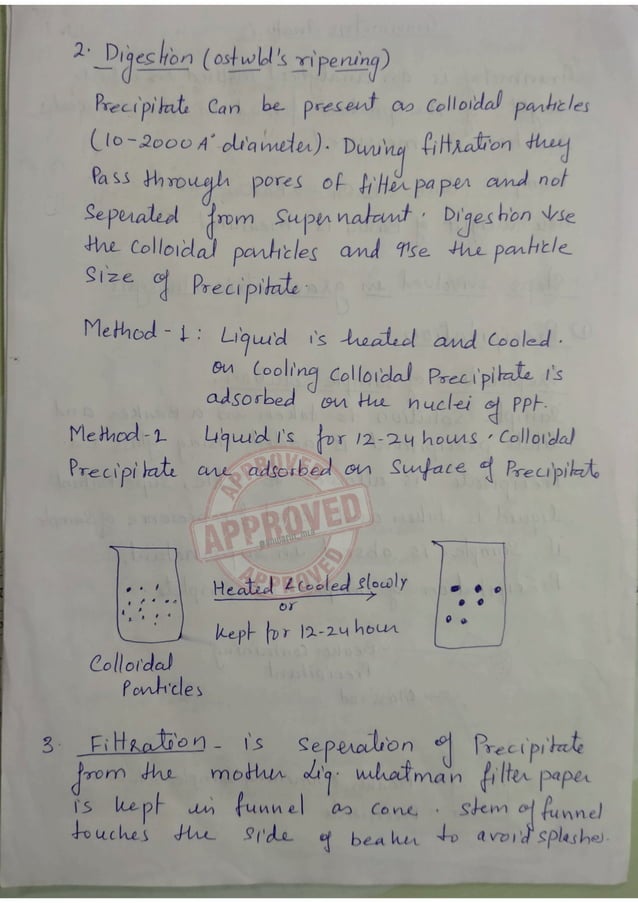 2. Digestion (ostwld's ripening)
Precipitate can be present as colloidal particles
(10-2000 A° diameter). During filtration they
Pass through pores of filter paper and not
Seperated from supernatant. Digestion ↓se
the colloidal particles and ↑se the particle
Size of Precipitate.
Method-1: Liquid is heated and cooled.
on cooling colloidal Precipitate is
adsorbed on the nuclei of ppt.
Method-2 Liquid is for 12-24 hours. Colloidal
Precipitate are adsorbed on surface of Precipitate
APPROVED
APPROVED
APPROVED
Heated & cooled slowly
or
kept for 12-24 hour
Colloidal
Particles
3. Filtration - is seperation of Precipitate
from the mother liq. whatman filter paper
is kept in funnel as cone. stem of funnel
touches the side of beaker to avoid splashes.